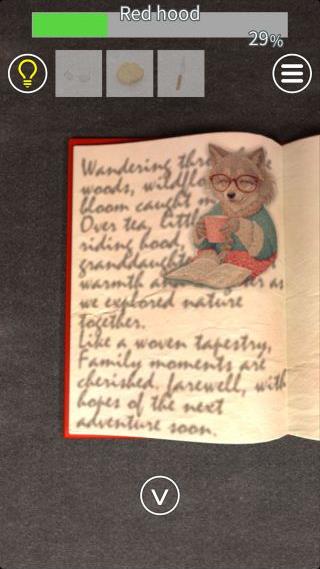 Red hood
29%
Wandering
woods,
bloom caught
Over tea,
riding hood,
warmth
we explored nature
together.
Like a woven tapestry,
Family moments are
cherished. farewell, with
hopes of the next
adventure soon.